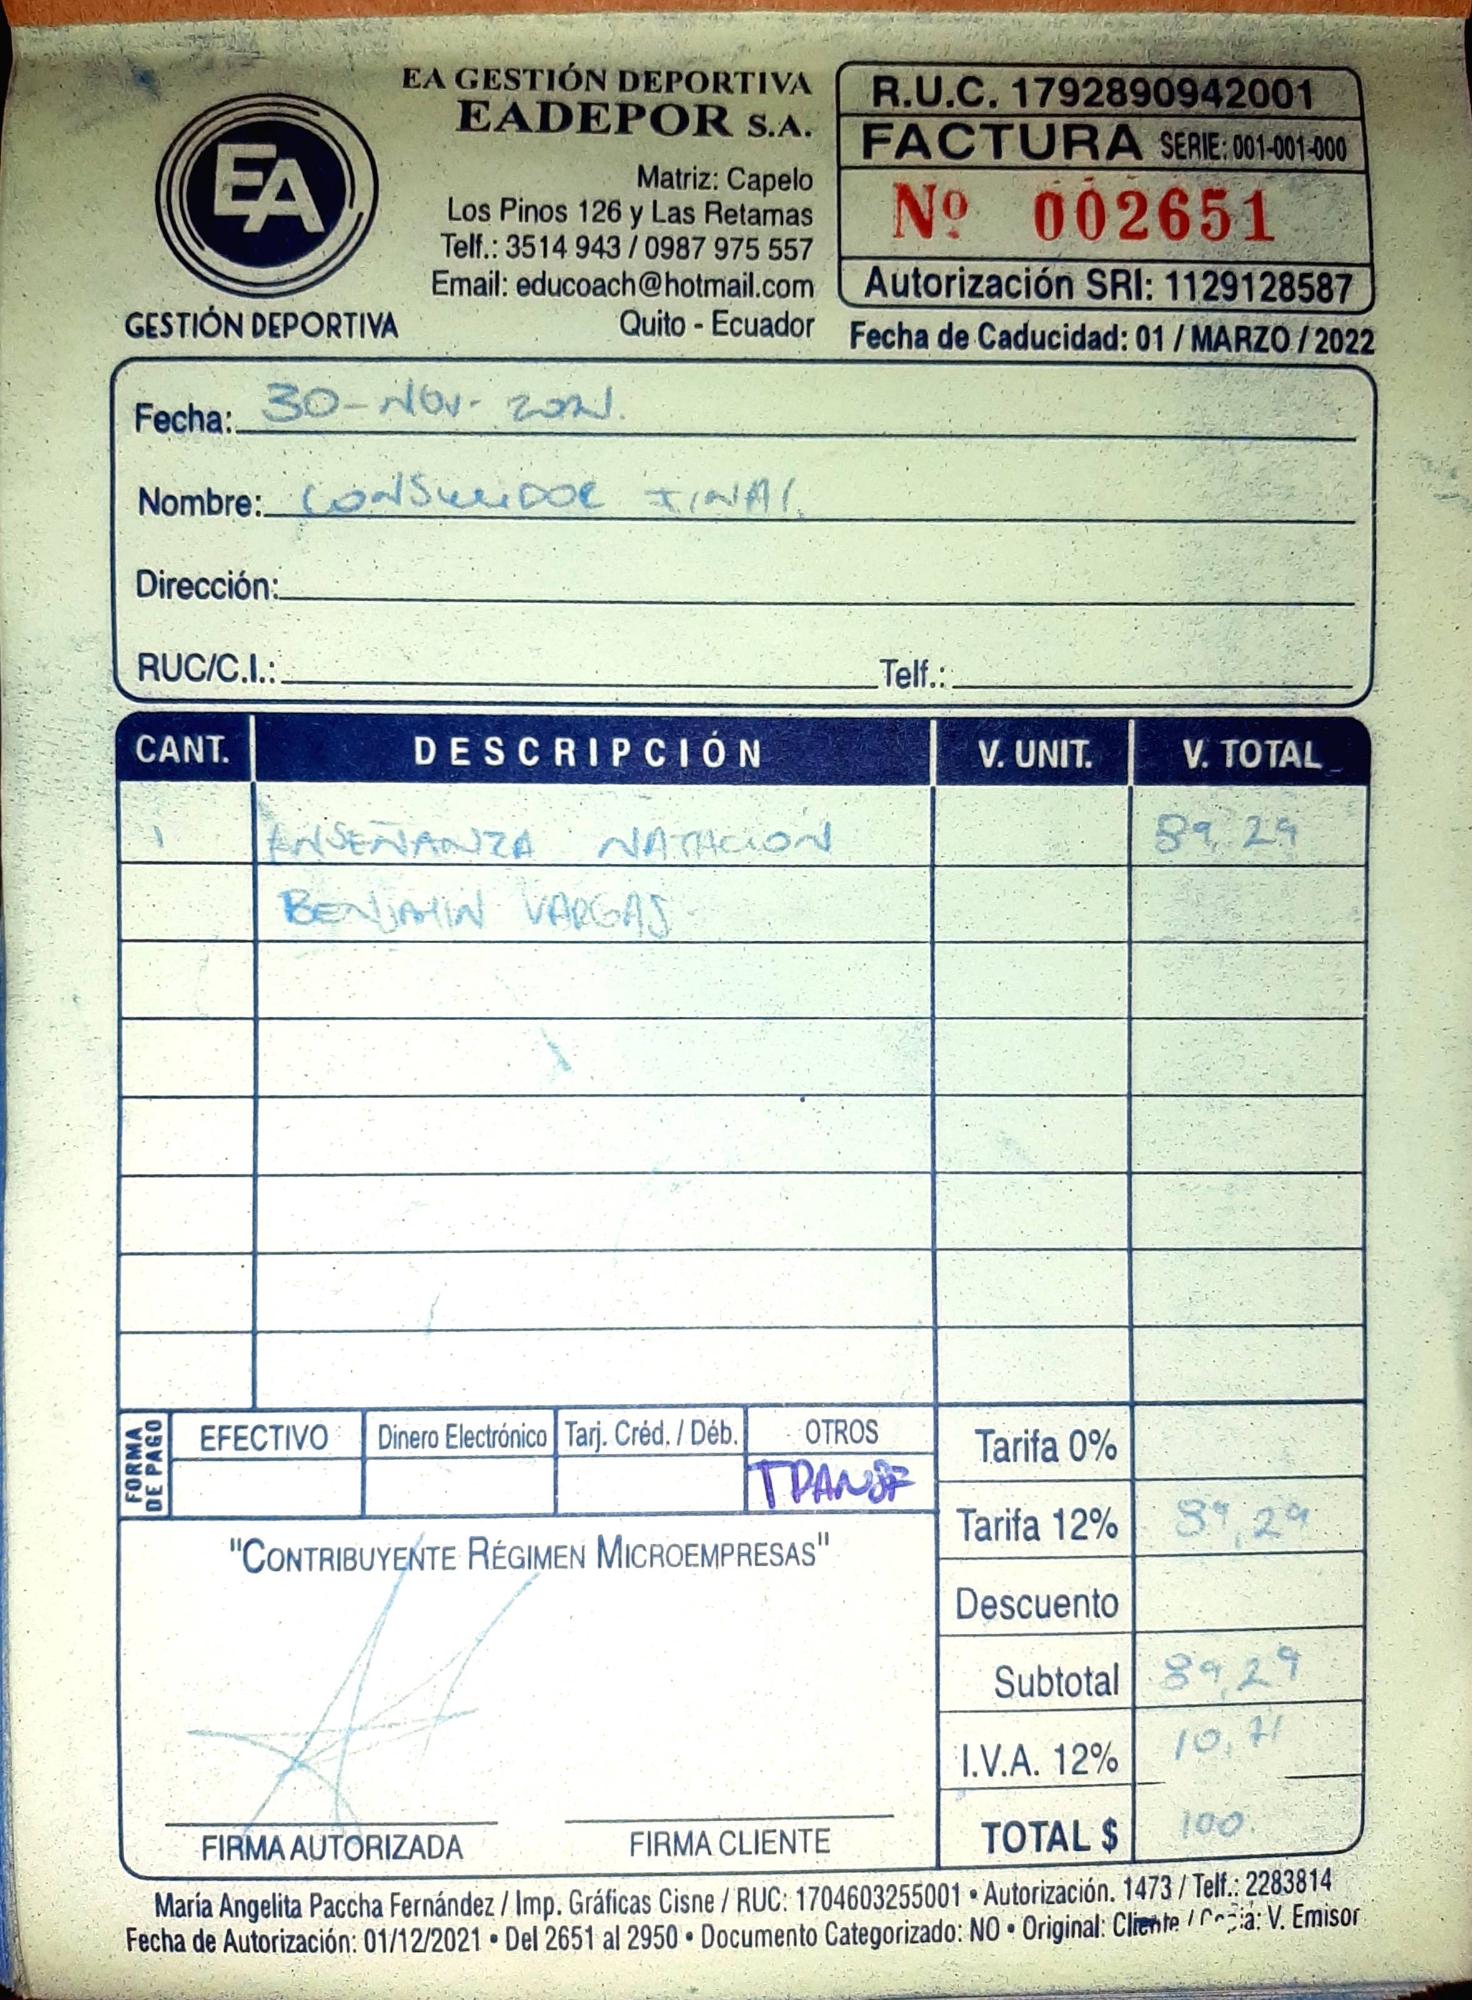 EA GESTIÓN DEPORTIVA
EADEPOR S.A.
Matriz: Capelo
Los Pinos 126 y Las Retamas
Telf.: 3514 943 / 0987 975 557
Email: educoach@hotmail.com
Quito - Ecuador
EA
GESTIÓN DEPORTIVA
R.U.C. 1792890942001
FACTURA SERIE: 001-001-000
Nº 002651
Autorización SRI: 1129128587
Fecha de Caducidad: 01 / MARZO / 2022
Fecha: 30-NOV-2021.
Nombre: CONSUMIDOR FINAL
Dirección:
RUC/C.I.: Telf.:
CANT. DESCRIPCIÓN V. UNIT. V. TOTAL
1 ENSEÑANZA NATACIÓN 89,29
BENJAMIN VARGAS
FORMA DE PAGO
EFECTIVO Dinero Electrónico Tarj. Créd. / Déb. OTROS
TRANSF
Tarifa 0%
Tarifa 12% 89,29
Descuento
Subtotal 89,29
I.V.A. 12% 10,71
TOTAL $ 100.
"CONTRIBUYENTE RÉGIMEN MICROEMPRESAS"
FIRMA AUTORIZADA FIRMA CLIENTE
María Angelita Paccha Fernández / Imp. Gráficas Cisne / RUC: 1704603255001 • Autorización. 1473 / Telf.: 2283814
Fecha de Autorización: 01/12/2021 • Del 2651 al 2950 • Documento Categorizado: NO • Original: Cliente / Copia: V. Emisor